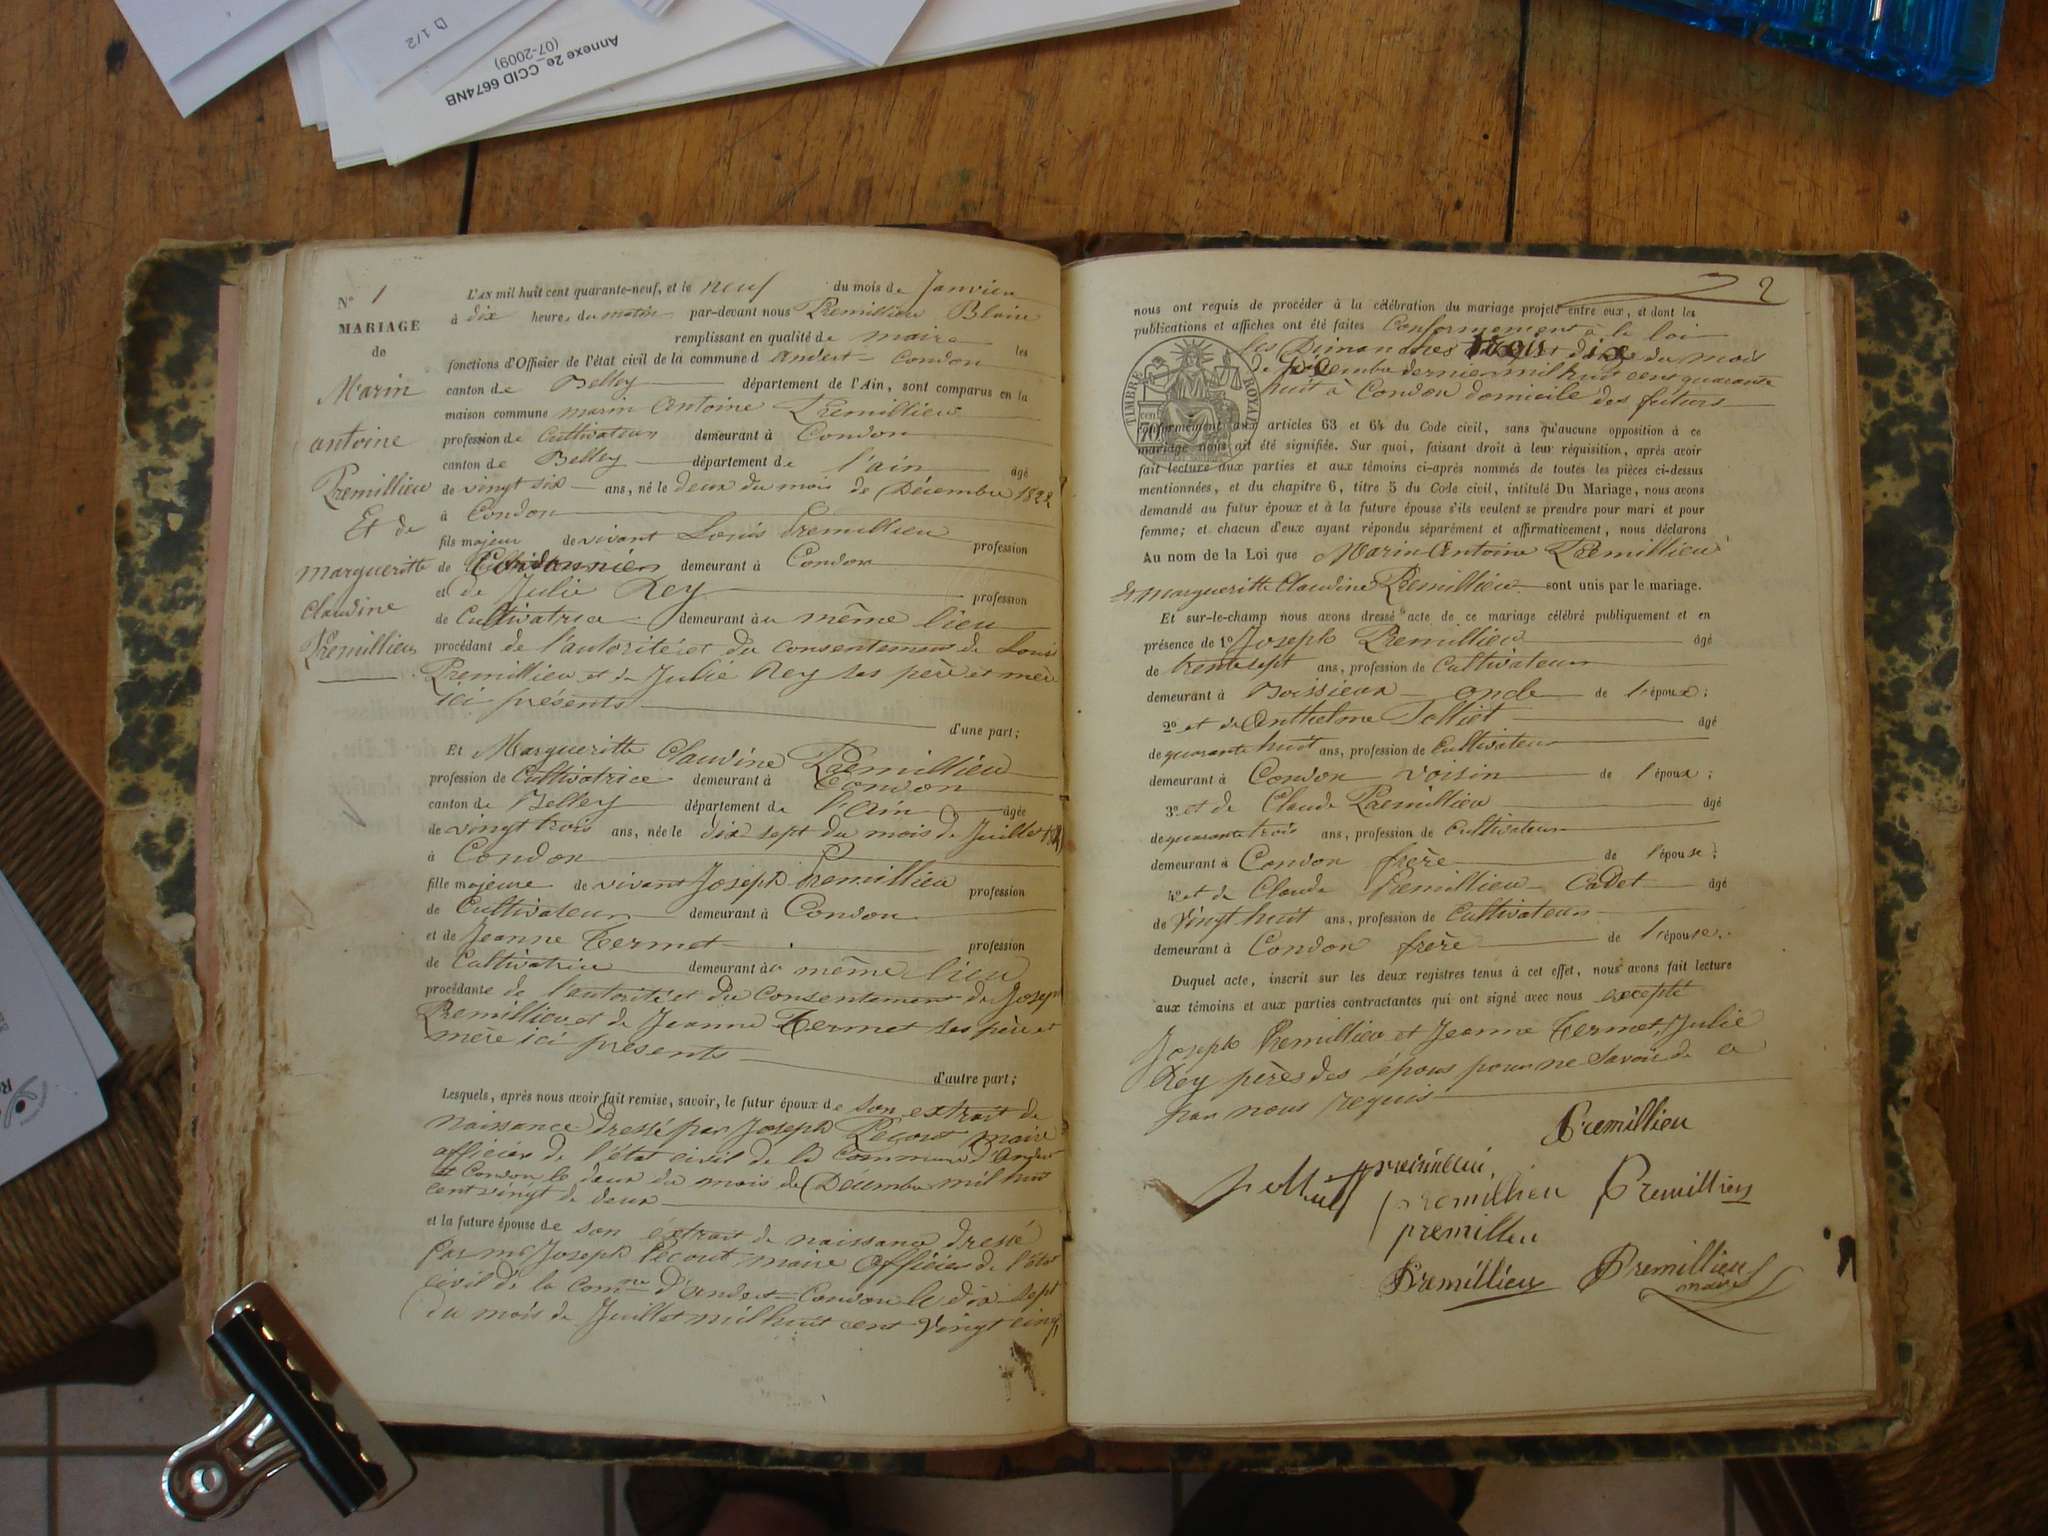 D 1/2
Annexe 2e_CCID 6674NB
(07-2009)
N° 1
MARIAGE
de
Marin
antoine
Premillieu
Et de
margueritte
Claudine
Premillieu
L'AN mil huit cent quarante-neuf, et le neuf du mois de Janvier
à dix heures du matin par-devant nous Premillieu Blaise
remplissant en qualité de maire les
fonctions d'Officier de l'état civil de la commune d'andert-Condon
canton de Belley département de l'Ain, sont comparus en la
maison commune marin Antoine Premillieu
profession de Cultivateur demeurant à Condon
canton de Belley département de l'ain âgé
de vingt six ans, né le deux du mois de Décembre 1822
à Condon
fils majeur de vivant Louis Premillieu profession
de Cordonnier demeurant à Condon
et de Julie Rey profession
de Cultivatrice demeurant au même lieu
procédant de l'autorité et du consentement de Louis
Premillieu et de Julie Rey ses père et mère
ici présents
d'une part;
Et Margueritte Claudine Premillieu
profession de Cultivatrice demeurant à Condon
canton de Belley département de l'Ain âgée
de vingt trois ans, née le dix sept du mois de Juillet
à Condon
fille majeure de vivant Joseph Premillieu profession
de Cultivateur demeurant à Condon
et de Jeanne Termet profession
de Cultivatrice demeurant au même lieu
procédante de l'autorité et du Consentement de Joseph
Premillieu et de Jeanne Termet ses père et
mère ici présents
d'autre part;
Lesquels, après nous avoir fait remise, savoir, le futur époux de son extrait de
naissance dressé par Joseph Pécout maire
officier de l'état civil de la Commune d'Andert
et Condon le deux du mois de Décembre mil huit
cent vingt de deux
et la future épouse de son extrait de naissance dressé
par mr Joseph Pécout maire Officier de l'état
civil de la Comne d'Andert-Condon le dix-sept
du mois de Juillet mil huit cent vingt cinq
2
nous ont requis de procéder à la célébration du mariage projeté entre eux, et dont les
publications et affiches ont été faites Conformement à la loi
les Dimanches trois et dix du mois
de décembre dernier mil huit cent quarante
huit à Condon domicile des futurs
TIMBRE ROYAL
70 cent
conformément aux articles 63 et 64 du Code civil, sans qu'aucune opposition à ce
mariage nous ait été signifiée. Sur quoi, faisant droit à leur réquisition, après avoir
fait lecture aux parties et aux témoins ci-après nommés de toutes les pièces ci-dessus
mentionnées, et du chapitre 6, titre 5 du Code civil, intitulé Du Mariage, nous avons
demandé au futur époux et à la future épouse s'ils veulent se prendre pour mari et pour
femme; et chacun d'eux ayant répondu séparément et affirmativement, nous déclarons
Au nom de la Loi que Marin Antoine Premillieu
et margueritte Claudine Premillieu sont unis par le mariage.
Et sur-le-champ nous avons dressé acte de ce mariage célébré publiquement et en
présence de 1° Joseph Premillieu âgé
de trente sept ans, profession de Cultivateur
demeurant à Boissieux oncle de l'époux;
2° et de Anthelme Tolliet âgé
de quarante huit ans, profession de Cultivateur
demeurant à Condon voisin de l'époux;
3° et de Claude Premillieu âgé
de quarante trois ans, profession de Cultivateur
demeurant à Condon frère de l'épouse;
4° et de Claude Premillieu Cadet âgé
de vingt huit ans, profession de Cultivateur
demeurant à Condon frère de l'épouse.
Duquel acte, inscrit sur les deux registres tenus à cet effet, nous avons fait lecture
aux témoins et aux parties contractantes qui ont signé avec nous excepté
Joseph Premillieu et Jeanne Termet, Julie
Rey pères des époux pour ne savoir de ce
par nous requis
Premillieu
premillieu
premillieu Premillieu
premilleu
Premillieu Premillieu
maire